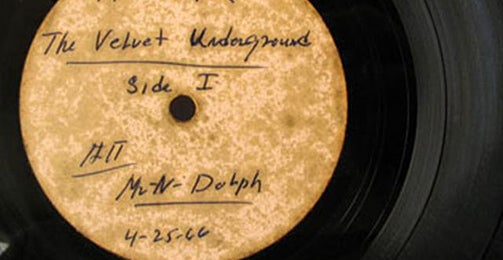 The Velvet Underground
Side I
Mr N. Dolph
4-25-66